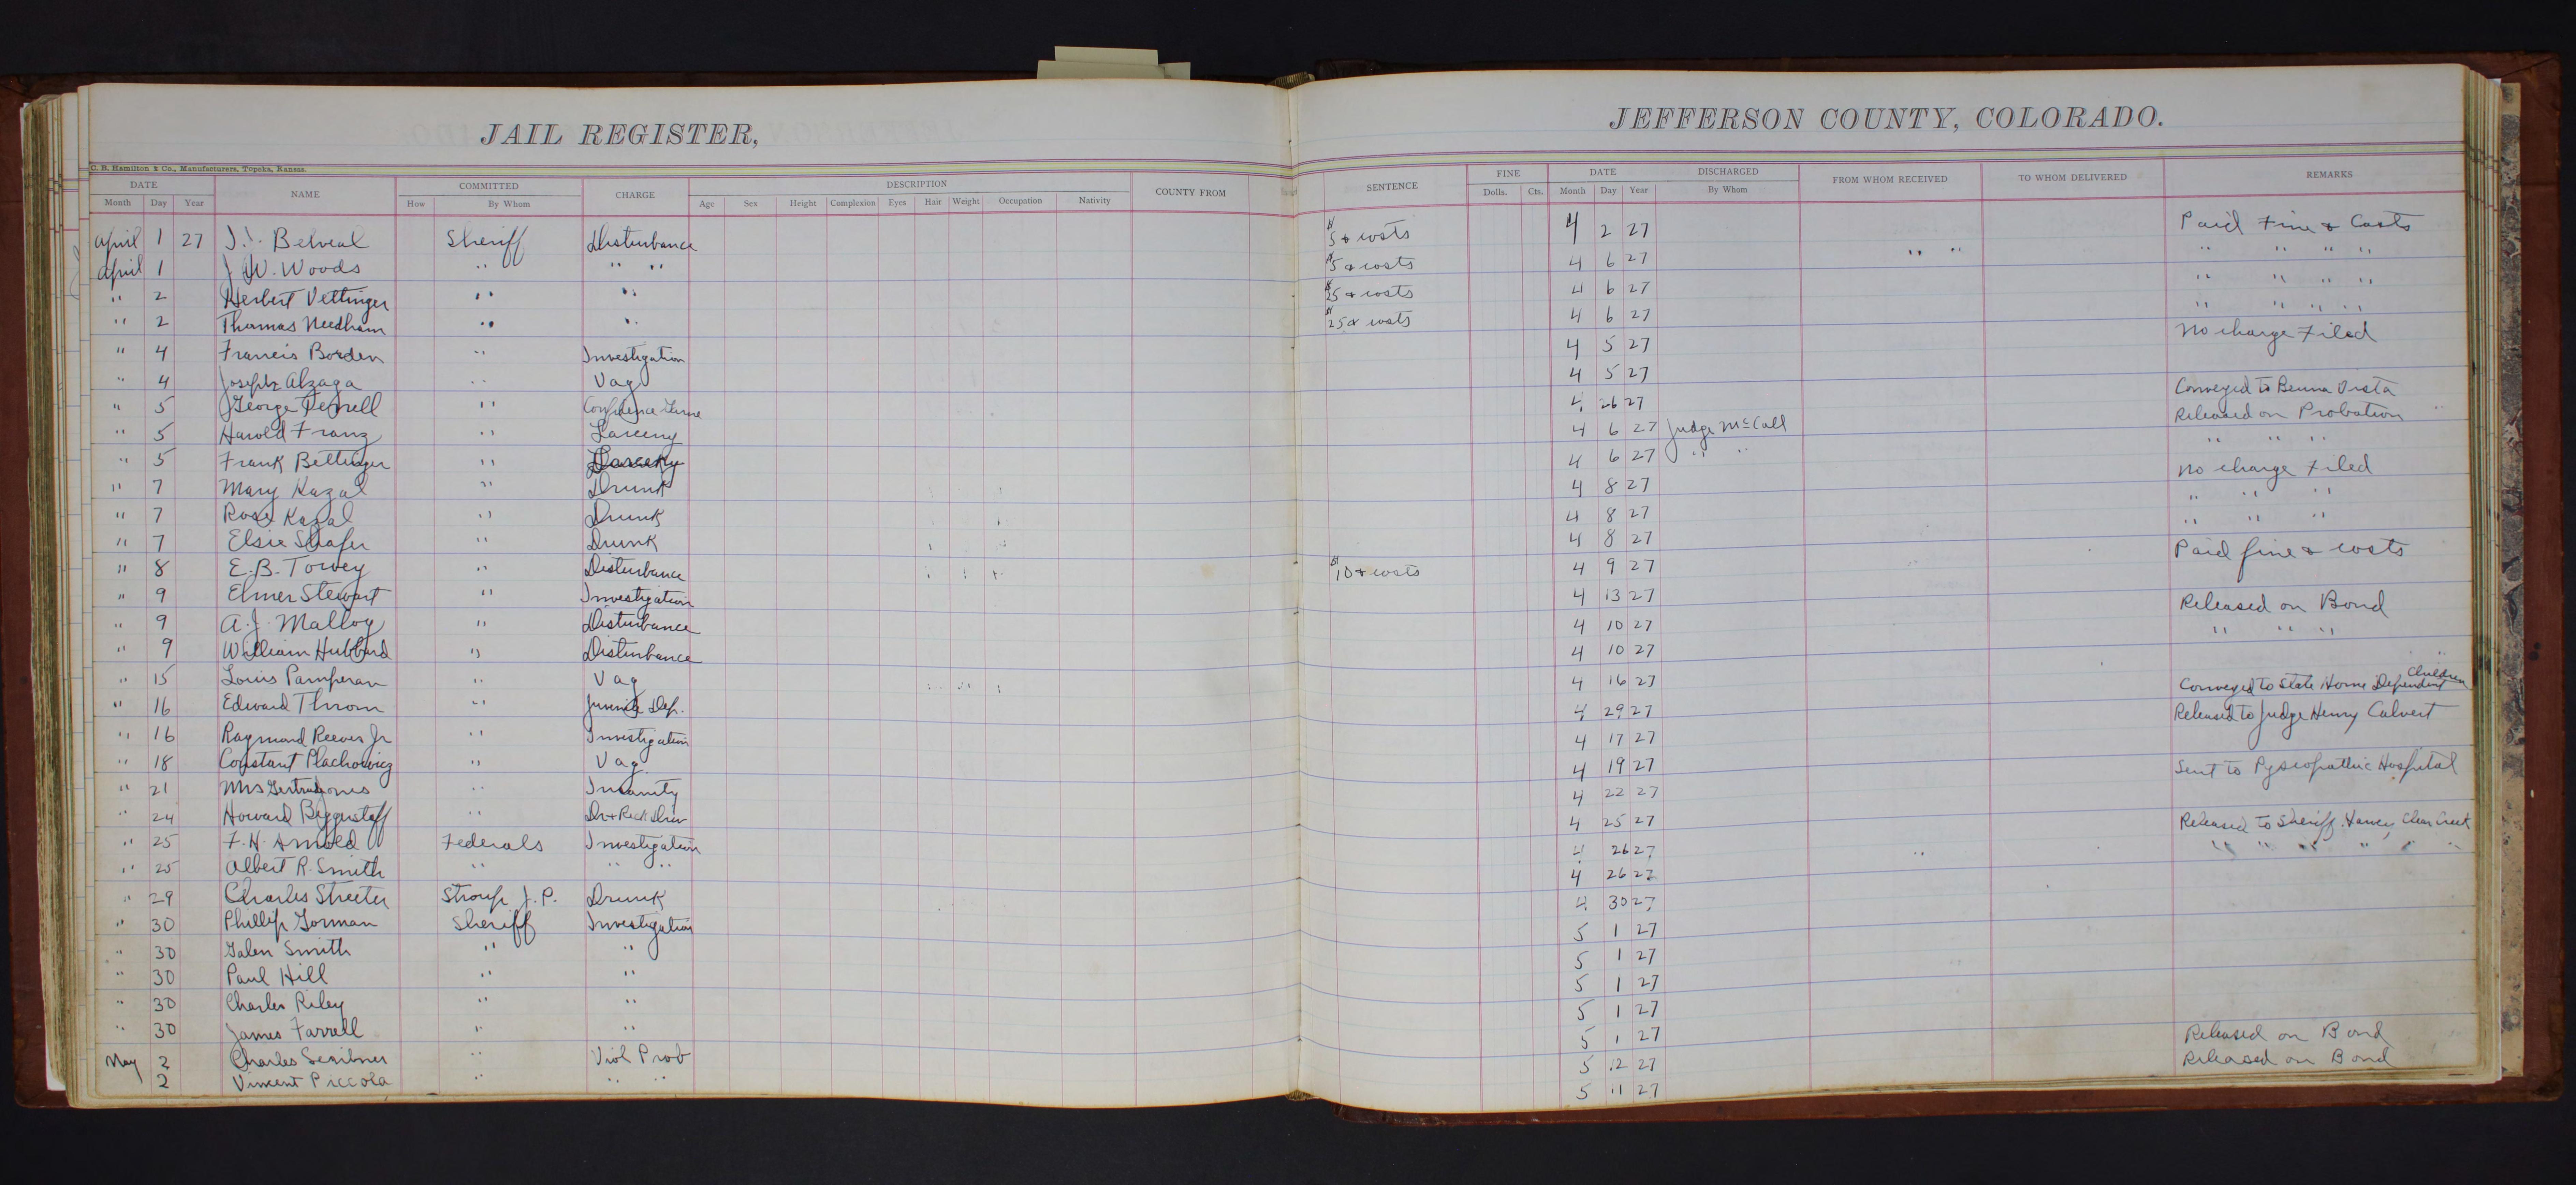 JAIL REGISTER,
JEFFERSON COUNTY, COLORADO.
C. B. Hamilton & Co., Manufacturers, Topeka, Kansas.
DATE NAME COMMITTED CHARGE DESCRIPTION COUNTY FROM SENTENCE FINE DATE DISCHARGED FROM WHOM RECEIVED TO WHOM DELIVERED REMARKS
Month Day Year How By Whom Age Sex Height Complexion Eyes Hair Weight Occupation Nativity Dolls. Cts. Month Day Year By Whom
April 1 27 Belveal Sheriff Disturbance $5 & costs 4 2 27 Paid Fine & Costs
April 1 J W. Woods " " " $5 & costs 4 6 27 " " " " " "
" 2 Herbert Vettinger " " $25 & costs 4 6 27 " " " "
" 2 Thomas Needham " " $25 & costs 4 6 27 " " " "
" 4 Francis Borden " Investigation 4 5 27 No charge Filed
" 4 Joseph Alzaga " Vag 4 5 27
" 5 George " Confidence Game 4 26 27 Conveyed to Beuna Vista
" 5 Harold Franz " Larceny 4 6 27 Judge McCall Released on Probation
" 5 Frank Bettinger " Larceny 4 6 27 " " " " "
" 7 Mary Kazal " Drunk 4 8 27 No charge Filed
" 7 Rose Kazal " Drunk 4 8 27 " " "
" 7 Elsie Shafer " Drunk 4 8 27 " " "
" 8 E. B. Towey " Disturbance $10 & costs 4 9 27 Paid fine & costs
" 9 Elmer Stewart " Investigation 4 13 27
" 9 A. J. Malloy " Disturbance 4 10 27 Released on Bond
" 9 William Hubbard " Disturbance 4 10 27 " " "
" 15 Louis Pamperan " Vag 4 16 27
" 16 Edward Throm " Juvenile Dep. 4 29 27 Conveyed to State Home Dependent Children
" 16 Raymond Reever Jr " Investigation 4 17 27 Released to Judge Henry Calvert
" 18 Constant Plachowicz " Vag 4 19 27
" 21 Mrs Gertrude Jones " Insanity 4 22 27 Sent to Pyscopathic Hospital
" 24 Howard Biggerstaff " Dr & Reck Driv 4 25 27
" 25 F. H. Arnold Federals Investigation 4 26 27 Released to Sheriff Clear Creek
" 25 Albert R. Smith " " " 4 26 27 " " " " " "
" 29 Charles Streeter Stroup J. P. Drunk 4 30 27
" 30 Phillip Gorman Sheriff Investigation 5 1 27
" 30 Galen Smith " " 5 1 27
" 30 Paul Hill " " 5 1 27
" 30 Charles Riley " " 5 1 27
" 30 James Farrell " " 5 1 27
May 2 Charles Scribner " Viol Prob 5 12 27 Released on Bond
2 Vincent Piccola " " " 5 11 27 Released on Bond